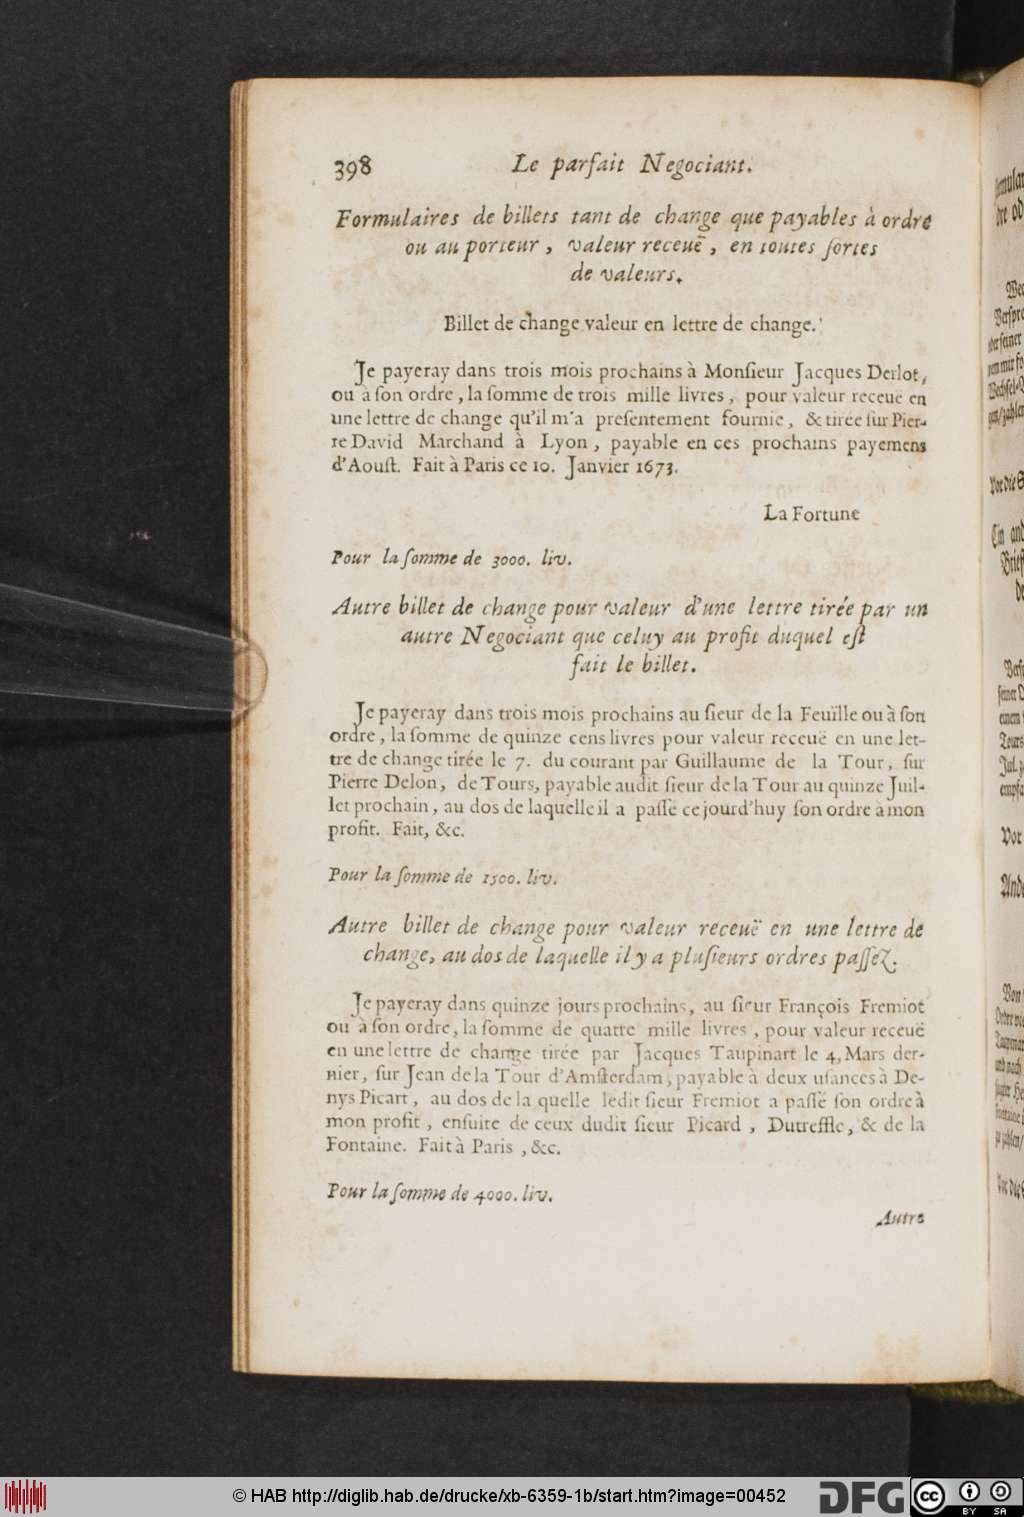 398 Le parfait Negociant.
Formulaires de billets tant de change que payables à ordre
ou au porteur, valeur receuë, en toutes sortes
de valeurs.
Billet de change valeur en lettre de change.
Je payeray dans trois mois prochains à Monsieur Jacques Derlot,
ou à son ordre, la somme de trois mille livres, pour valeur receuë en
une lettre de change qu'il m'a presentement fournie, & tirée sur Pier-
re David Marchand à Lyon, payable en ces prochains payemens
d'Aoust. Fait à Paris ce 10. Janvier 1673.
La Fortune
Pour la somme de 3000. liv.
Autre billet de change pour valeur d'une lettre tirée par un
autre Negociant que celuy au profit duquel est
fait le billet.
Je payeray dans trois mois prochains au sieur de la Feuïlle ou à son
ordre, la somme de quinze cens livres pour valeur receuë en une let-
tre de change tirée le 7. du courant par Guillaume de la Tour, sur
Pierre Delon, de Tours, payable audit sieur de la Tour au quinze Juil-
let prochain, au dos de laquelle il a passé ce jourd'huy son ordre à mon
profit. Fait, &c.
Pour la somme de 1500. liv.
Autre billet de change pour valeur receuë en une lettre de
change, au dos de laquelle il y a plusieurs ordres passez.
Je payeray dans quinze jours prochains, au sieur François Fremiot
ou à son ordre, la somme de quatre mille livres, pour valeur receuë
en une lettre de change tirée par Jacques Taupinart le 4, Mars der-
nier, sur Jean de la Tour d'Amsterdam, payable à deux usances à De-
nys Picart, au dos de la quelle ledit sieur Fremiot a passé son ordre à
mon profit, ensuite de ceux dudit sieur Picard, Dutreffle, & de la
Fontaine. Fait à Paris, &c.
Pour la somme de 4000. liv.
Autre
© HAB http://diglib.hab.de/drucke/xb-6359-1b/start.htm?image=00452
DFG
cc
BY SA